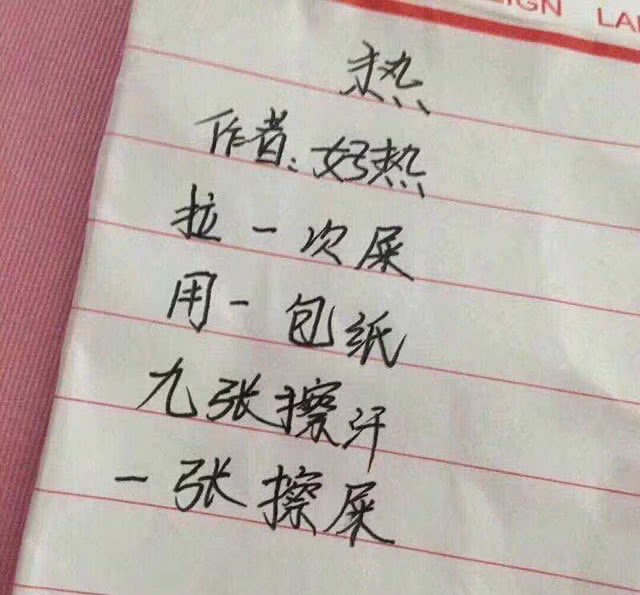 IGN LA
热
作者:好热
拉一次屎
用一包纸
九张擦汗
一张擦屎